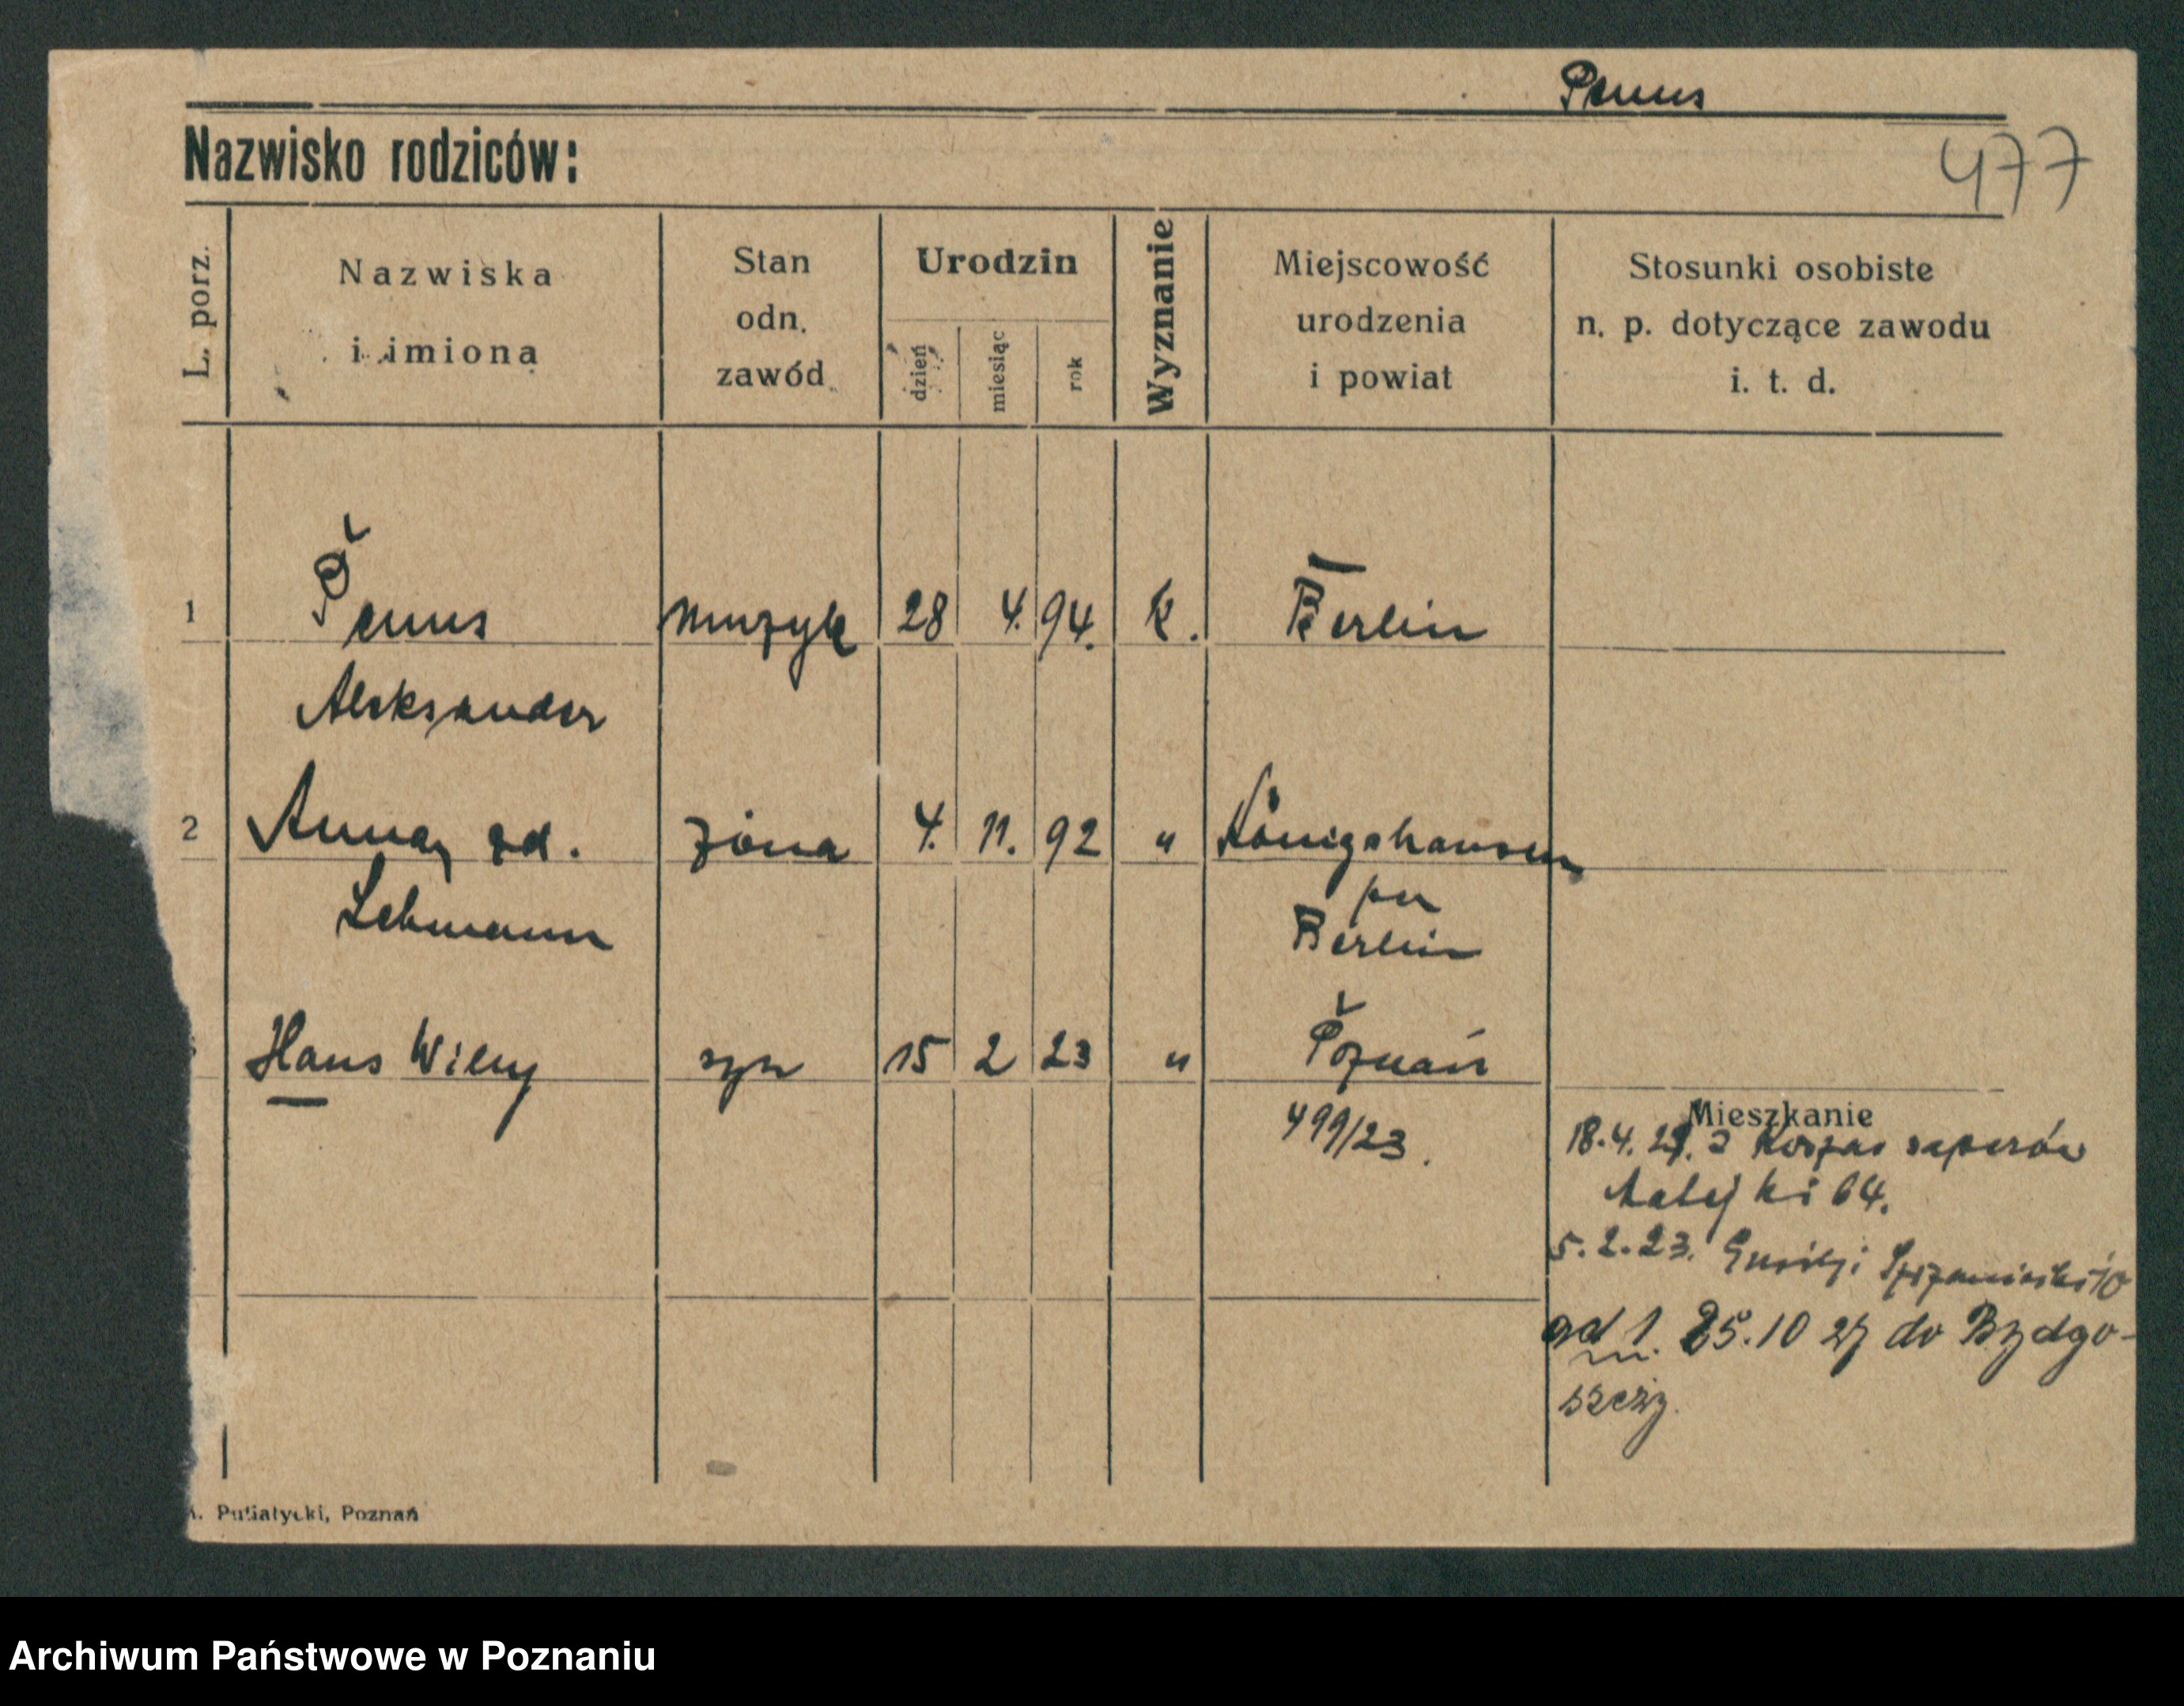 Penus
Nazwisko rodziców:
477
L. porz.
Nazwiska
i imiona
Stan
odn.
zawód
Urodzin
dzień
miesiąc
rok
Wyznanie
Miejscowość
urodzenia
i powiat
Stosunki osobiste
n. p. dotyczące zawodu
i. t. d.
1 Penus muzyk 28 4. 94. k. Berlin
Aleksander
2 Anna zd. żona 4. 11. 92 " Königshausen
Lehmann
per
Berlin
Hans Willy syn 15 2 23 " Poznań
499/23.
Mieszkanie
18.4. Koszar saperów
Matejki 64.
5.2.23.
od 1. 25.10 27 do Bydgo-
szczy.
A. Putiatycki, Poznań
Archiwum Państwowe w Poznaniu